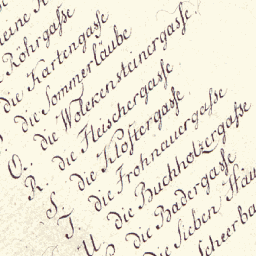 Röhrgaſse
die Kartengaſse
die Sommerlaube
die Wolckensteinergaſse
O. die Fleischergaſse
R. die Kloſtergaſse
S. die Frohnauergaſse
T. die Buchholzergaſse
U. die Badergaſse
die Sieben